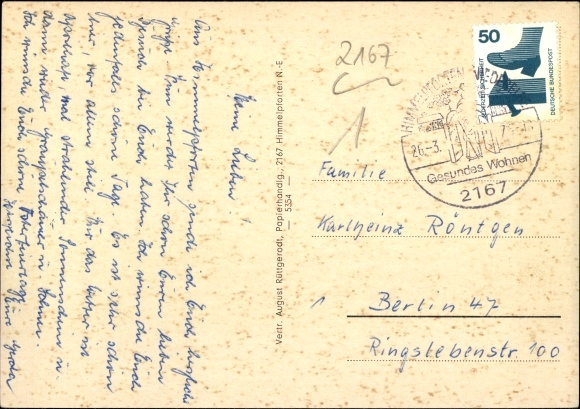 Meine Lieben!
Aus Himmelpforten sende ich Euch herzliche
Grüße. Nun werdet Ihr schon Euren lieben
Besuch bei Euch haben. Ich wünsche Euch
jedenfalls schöne Tage. Es ist sehr schön
hier, vor allem still. Für das Wetter ist
mal strahlender Sonnenschein u.
dann wieder Graupelschauer u. Schnee.
Ich wünsche Euch schöne Ostertage
Herzlichst Eure
Vertr. August Rüttgerodt, Papierhandlg., 2167 Himmelpforten N.-E.
5354
2167
1
50
JEDERZEIT SICHERHEIT
DEUTSCHE BUNDESPOST
HIMMELPFORTEN
26.-3.
Gesundes Wohnen
2167
Familie
Karlheinz Röntgen
1 Berlin 47
Ringslebenstr. 100